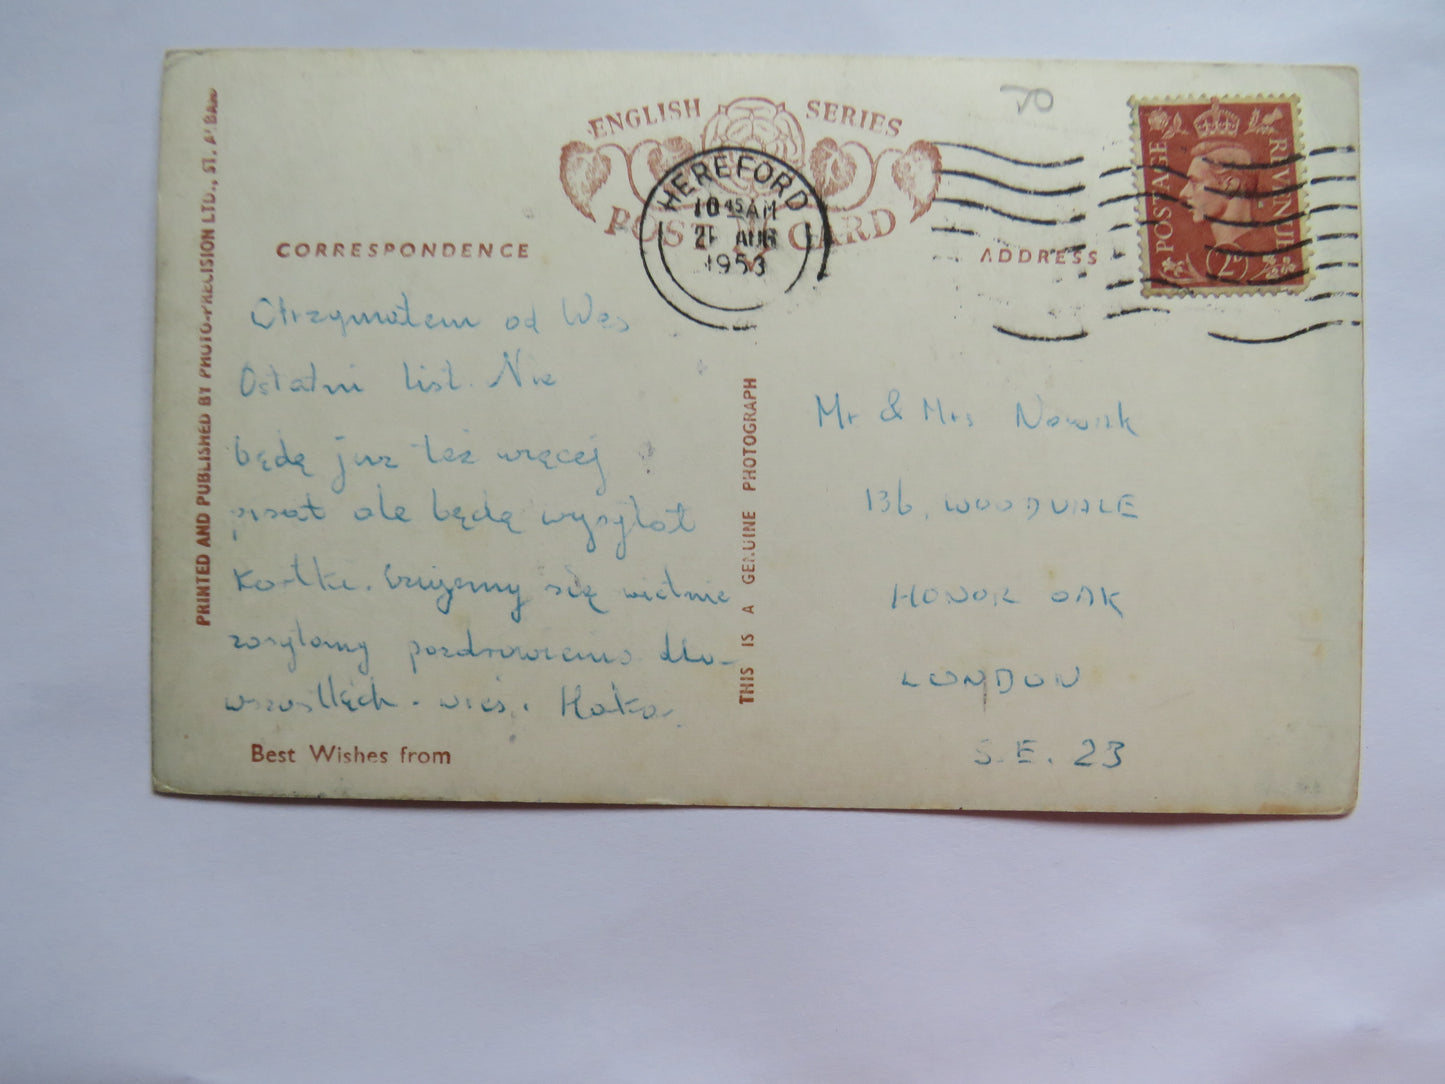 ENGLISH SERIES
POST CARD
HEREFORD
10 45 AM
21 AUG
1953
POSTAGE REVENUE
2D
CORRESPONDENCE
ADDRESS
PRINTED AND PUBLISHED BY PHOTO-PRECISION LTD., ST. ALBANS
Otrzymałem od Was
Ostatni list. Nie
będę już też więcej
pisał ale będę wysyłał
Kartki. się
zasyłamy pozdrowienia dla
wszystkich.
Best Wishes from
THIS IS A GENUINE PHOTOGRAPH
Mr & Mrs Nowak
136, WOODVALE
HONOR OAK
LONDON
S.E. 23